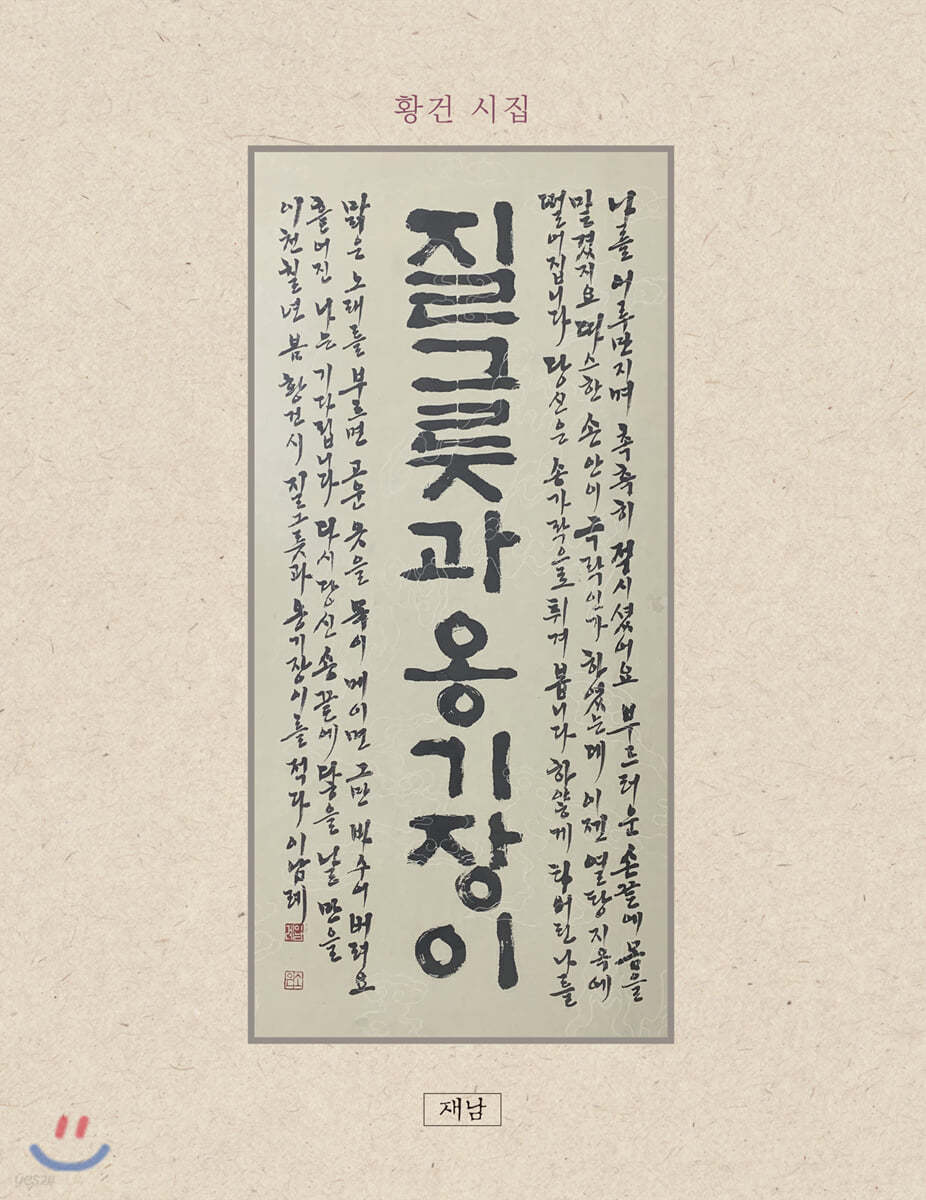 황건 시집
나를 어루만지며 촉촉히 적시셨어요 부드러운 손끝에 몸을
맡겼지요 따스한 손안이 극락인가 하였는데 이젠 열탕 지옥에
떨어집니다 당신은 손가락으로 튀겨 봅니다 하얗게 타버린 나를
질그릇과 옹기장이
맑은 노래를 부르면 고운 옷을 목이 메이면 그만 바수어 버려요
흩어진 나는 기다립니다 다시 당신 손끝에 닿을 날만을
이천칠년 봄 황건시 질그릇과 옹기장이를 적다 이남례
재남
yes24